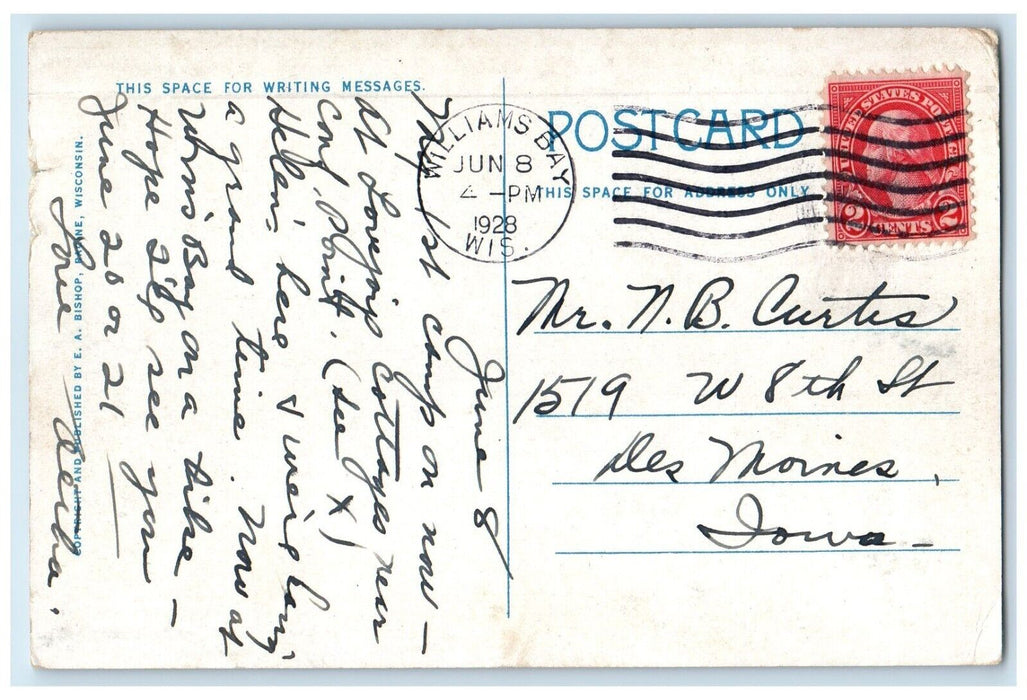 THIS SPACE FOR WRITING MESSAGES.
POSTCARD
THIS SPACE FOR ADDRESS ONLY
WILLIAMS BAY
JUN 8
4 - PM
1928
WIS.
UNITED STATES POSTAGE
2 CENTS 2
June 8
My 1st camp on now -
at Lovejoy Cottages near
Conf. Point. (see X)
Helen's here & we're having
a grand time. Now at
Wms Bay on a hike -
Hope I'll see you
June 20 or 21
Love
Mr. N. B. Curtis
1519 W 8th St
Des Moines,
Iowa -
COPYRIGHT AND PUBLISHED BY E. A. BISHOP, RACINE, WISCONSIN.